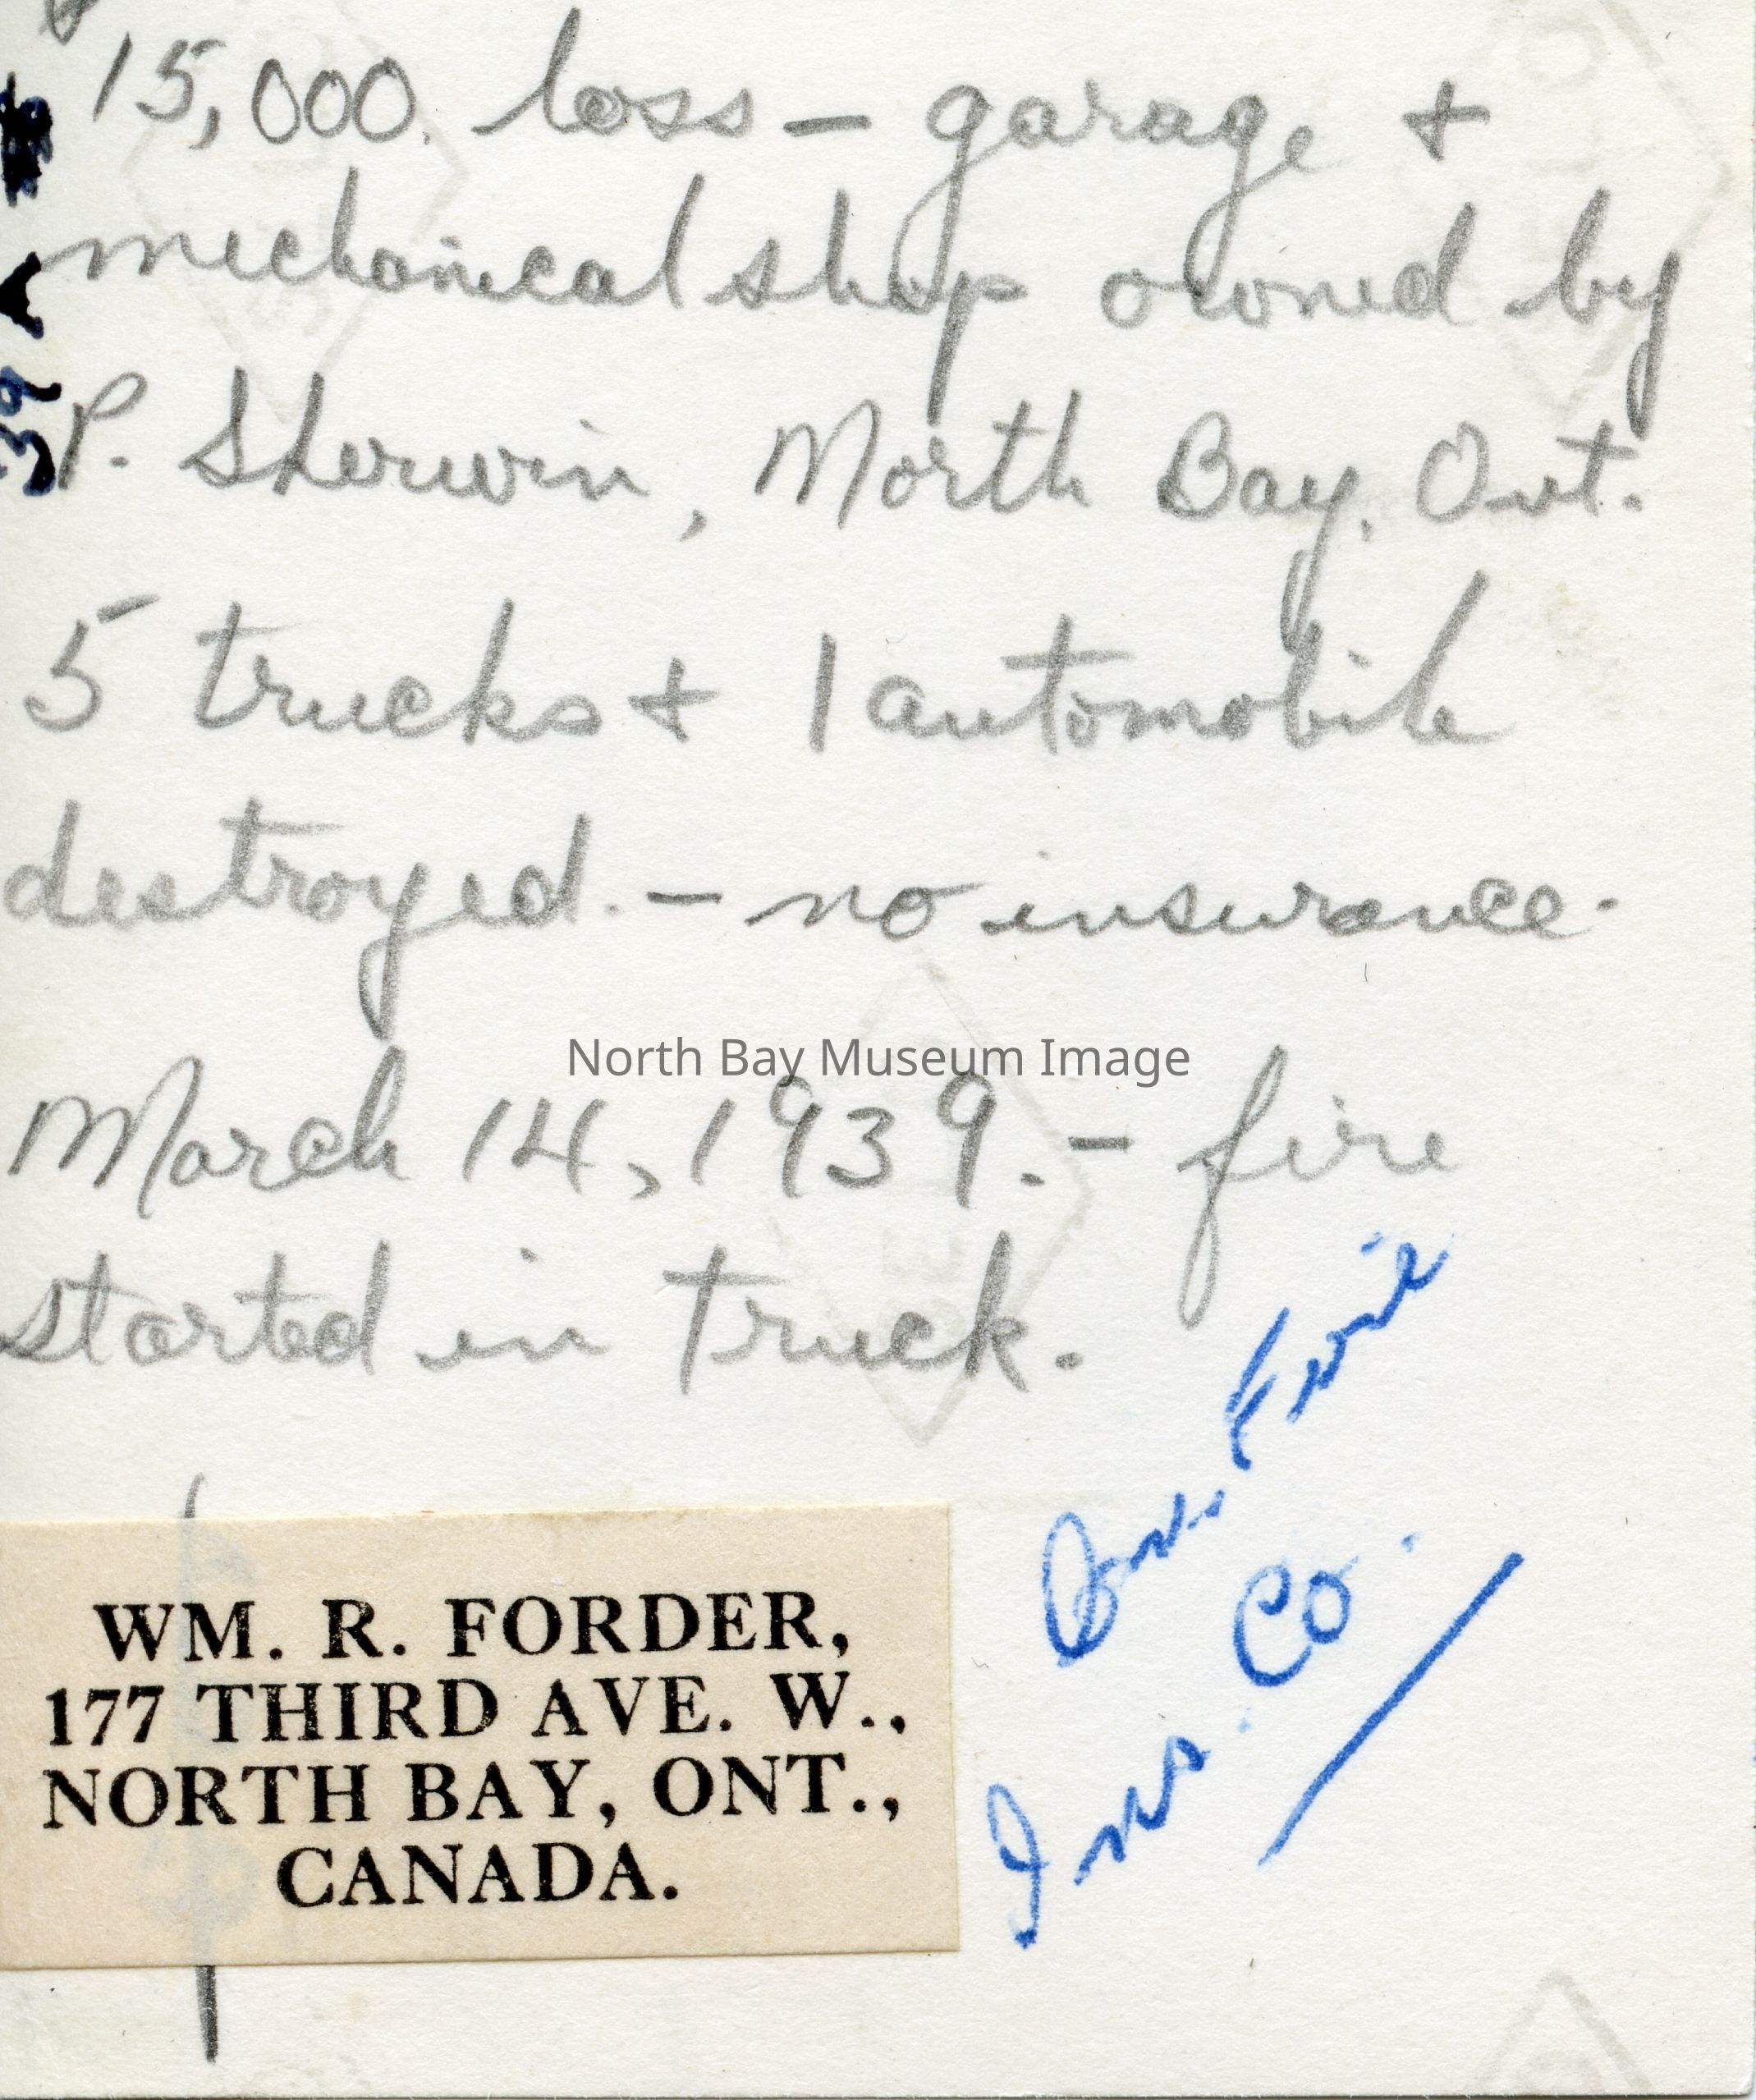 15,000. loss — garage +
mechanical shop owned by
P. Sherwin, North Bay, Ont.
5 trucks + 1 automobile
destroyed. — no insurance.
North Bay Museum Image
March 14, 1939. — fire
started in truck.
Fire
Ins. Co.
WM. R. FORDER,
177 THIRD AVE. W.,
NORTH BAY, ONT.,
CANADA.
39 A